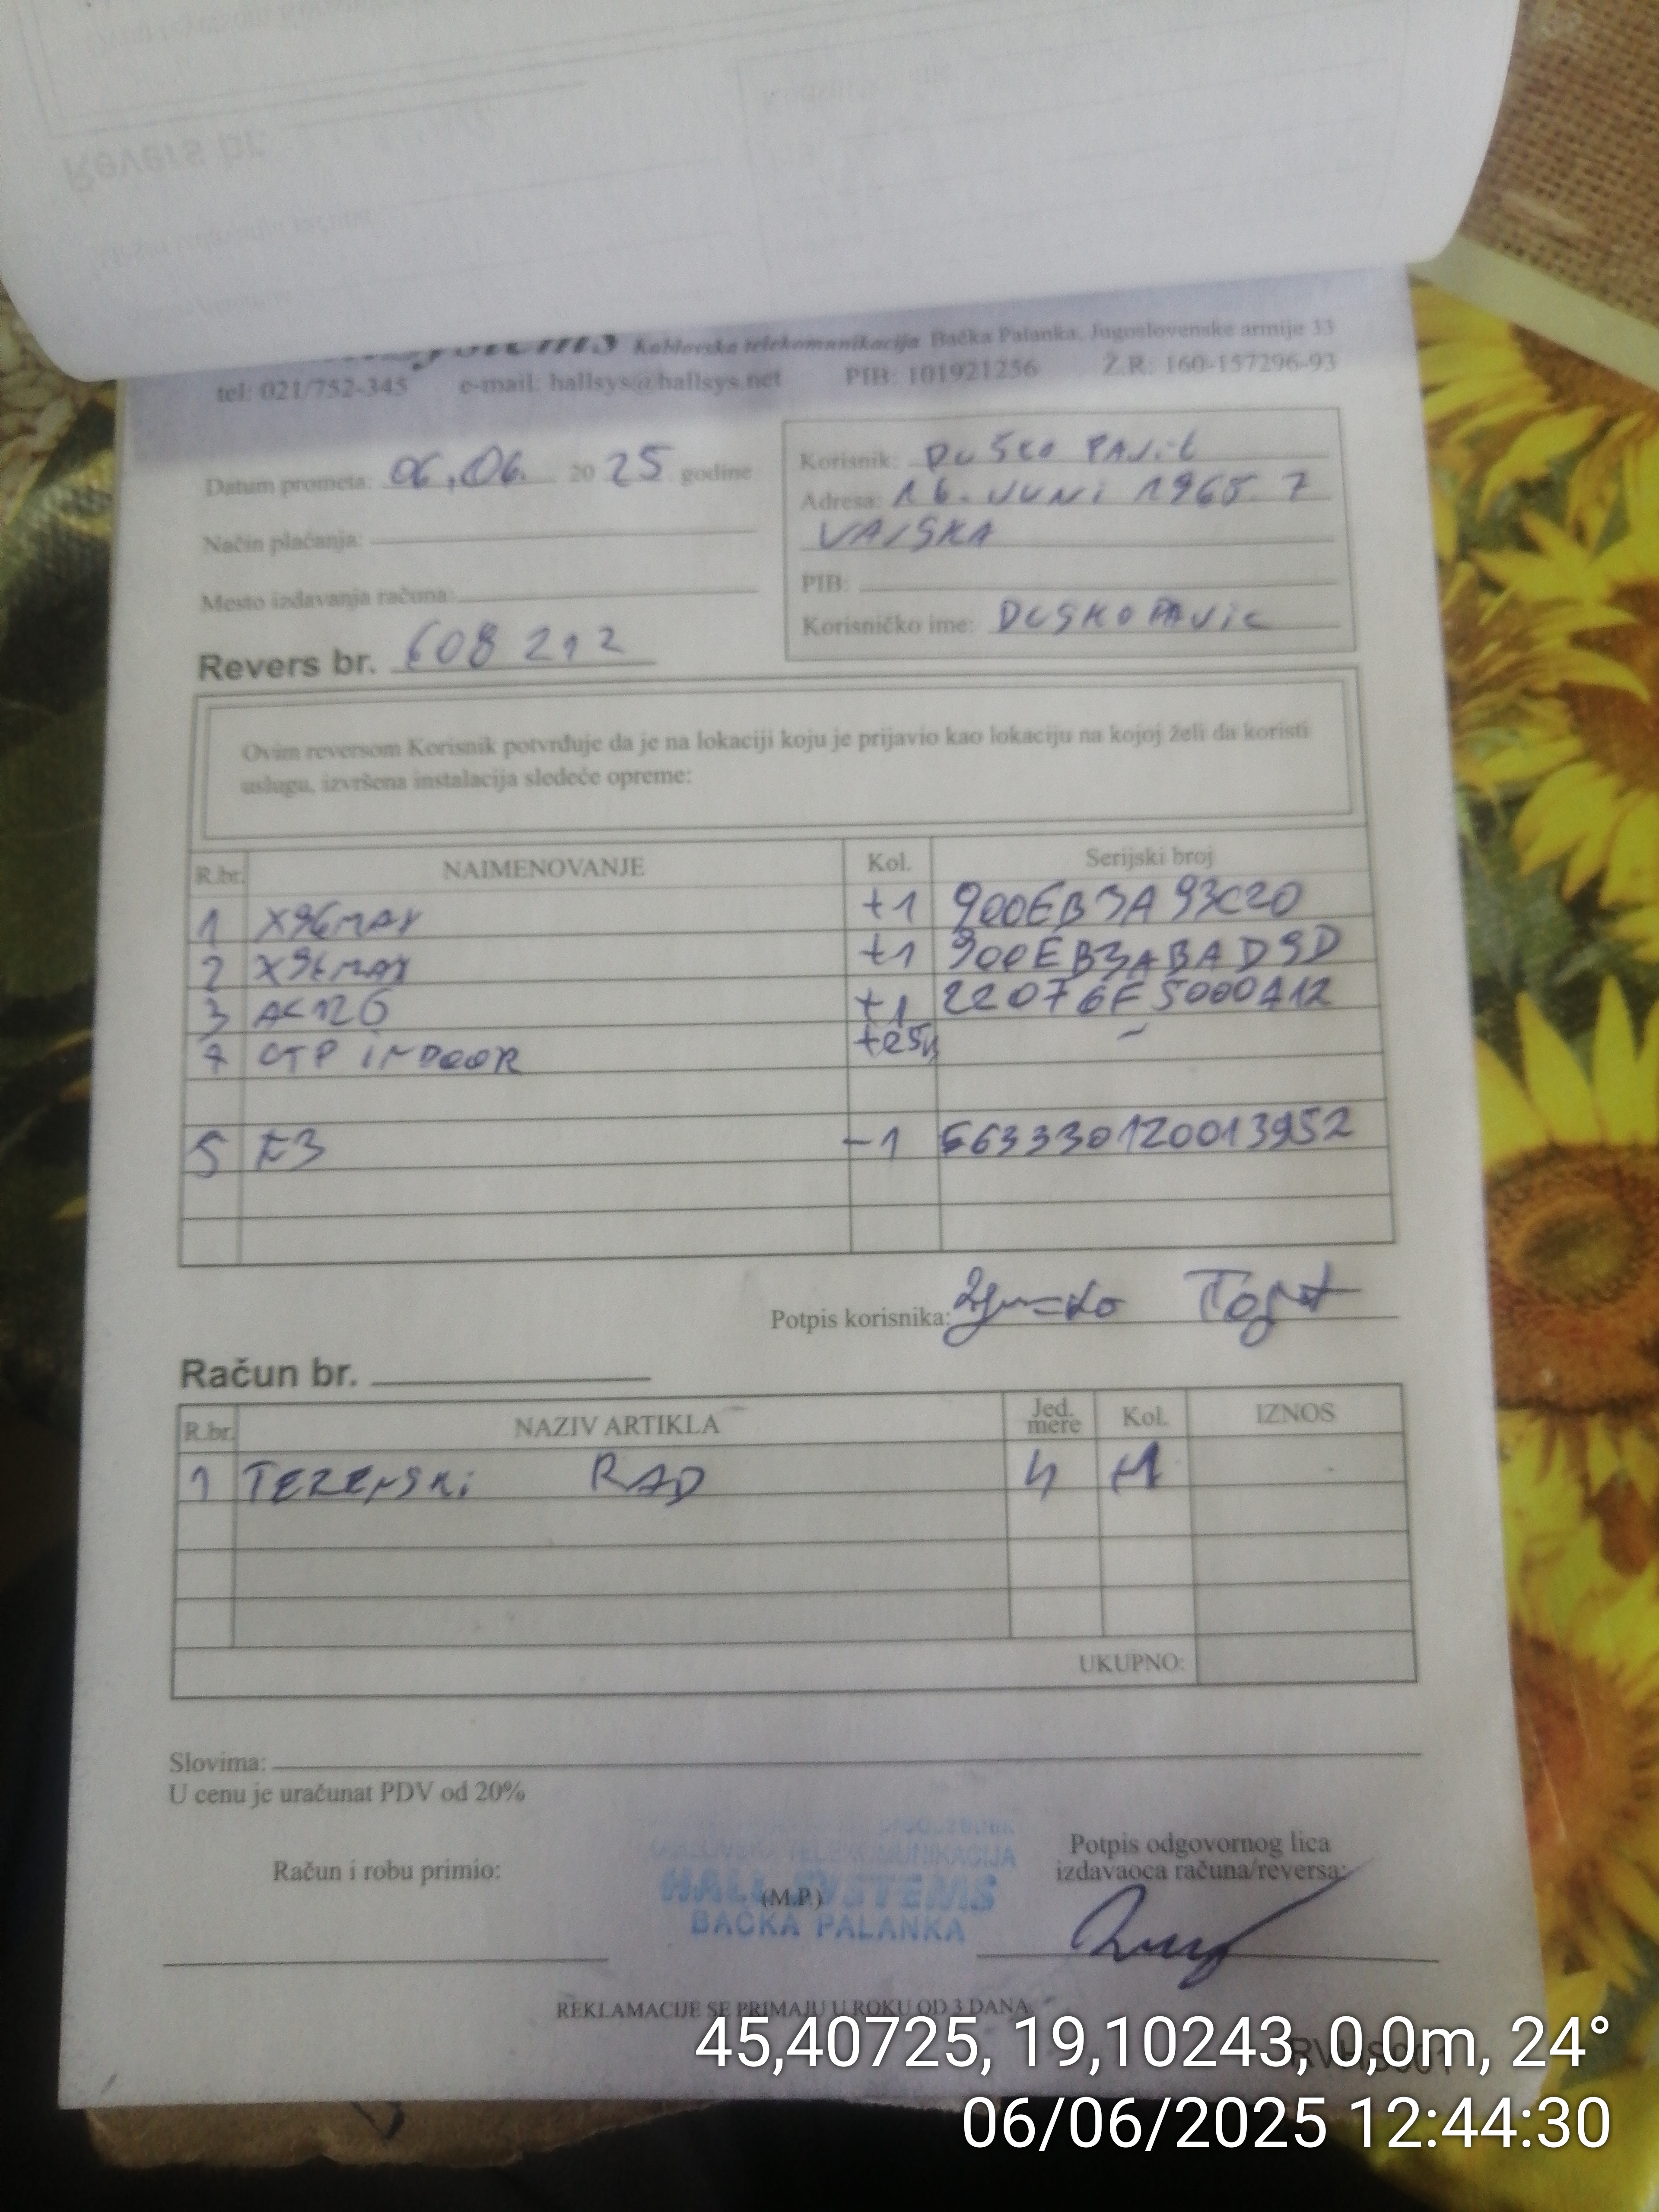 Kablovska telekomunikacija Bačka Palanka, Jugoslovenske armije 33
tel: 021/752-345 e-mail: hallsys@hallsys.net PIB: 101921256 Ž.R: 160-157296-93
Datum prometa: 06.06. 2025 godine
Način plaćanja:
Mesto izdavanja računa:
Revers br. 608 212
Korisnik: DUŠKO PAVIĆ
Adresa: 16. JUNI 1965 7
VAJSKA
PIB:
Korisničko ime: DUSKOPAVIC
Ovim reversom Korisnik potvrđuje da je na lokaciji koju je prijavio kao lokaciju na kojoj želi da koristi
uslugu, izvršena instalacija sledeće opreme:
R.br. NAIMENOVANJE Kol. Serijski broj
1 X96MAX +1 900EB3A93C20
2 X96MAX +1 900EB3ABAD9D
3 +1 22076E5000A12
4 OTP INDOOR -
5 -1 563330120013952
Potpis korisnika:
Račun br.
R.br. NAZIV ARTIKLA Jed. mere Kol. IZNOS
1 TERENSKI RAD h +1
UKUPNO:
Slovima:
U cenu je uračunat PDV od 20%
Račun i robu primio:
KABLOVSKA TELEKOMUNIKACIJA
HALL SYSTEMS
BAČKA PALANKA
(M.P.)
Potpis odgovornog lica
izdavaoca računa/reversa:
REKLAMACIJE SE PRIMAJU U ROKU OD 3 DANA
45,40725, 19,10243, 0,0m, 24°
06/06/2025 12:44:30